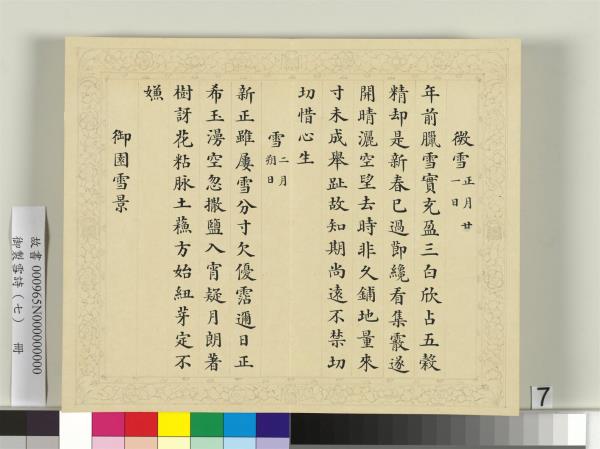 微雪 正月廿一日
年前臘雪實充盈三白欣占五穀
精却是新春已過節纔看集霰遂
開晴灑空望去時非久鋪地量來
寸未成舉趾故知期尚遠不禁切
切惜心生
雪 二月朔日
新正雖屢雪分寸欠優霑邇日正
希玉澇空忽撒鹽入宵疑月朗著
樹訝花粘脉土蘓方始紐芽定不
嫌
御園雪景
故書 000965N000000000
御製雪詩（七） 冊
7